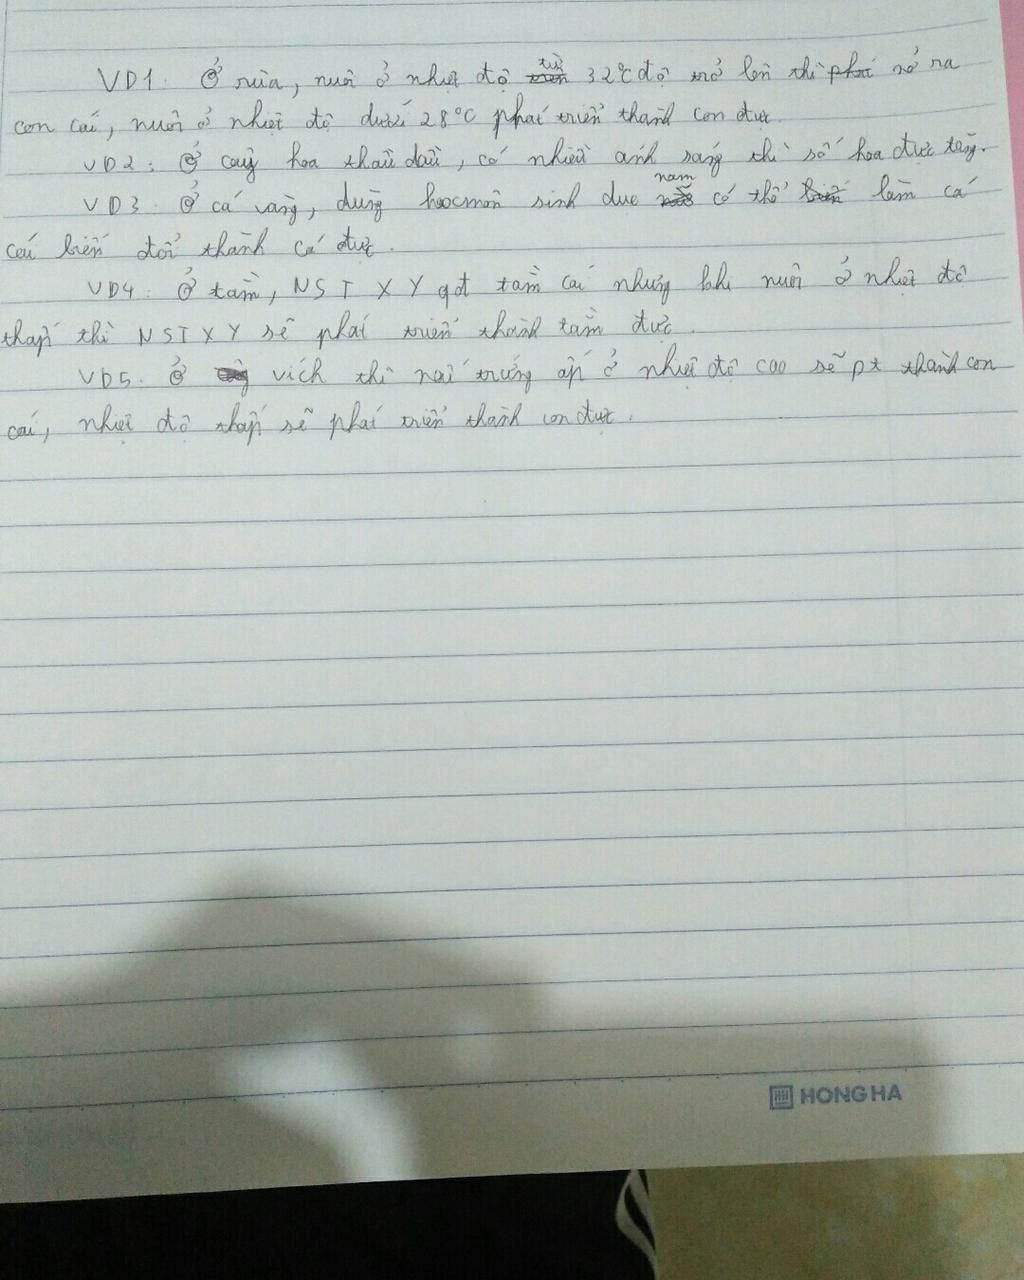 VD1. Ở rùa, nuôi ở nhiệt độ từ 32°C độ trở lên thì phát nở ra
con cái, nuôi ở nhiệt độ dưới 28°C phát triển thành con đực.
VD2: Ở cây hoa thầu dầu, có nhiều ánh sáng thì số hoa đực tăng.
VD3: Ở cá vàng, dùng hoocmôn sinh dục nam có thể làm cá
cái biến đổi thành cá đực.
VD4: Ở tằm, NST XY qđ tằm cái nhưng khi nuôi ở nhiệt độ
thấp thì NST XY sẽ phát triển thành tằm đực.
VD5. Ở vích thì trứng ấp ở nhiệt độ cao sẽ pt thành con
cái, nhiệt độ thấp sẽ phát triển thành con đực.
HONG HA